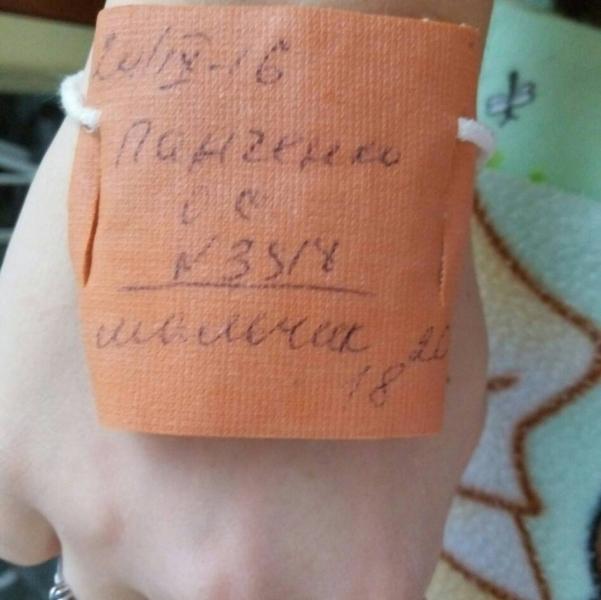 24/IX-16
Панченко
О С
N 3517
мальчик
18 20